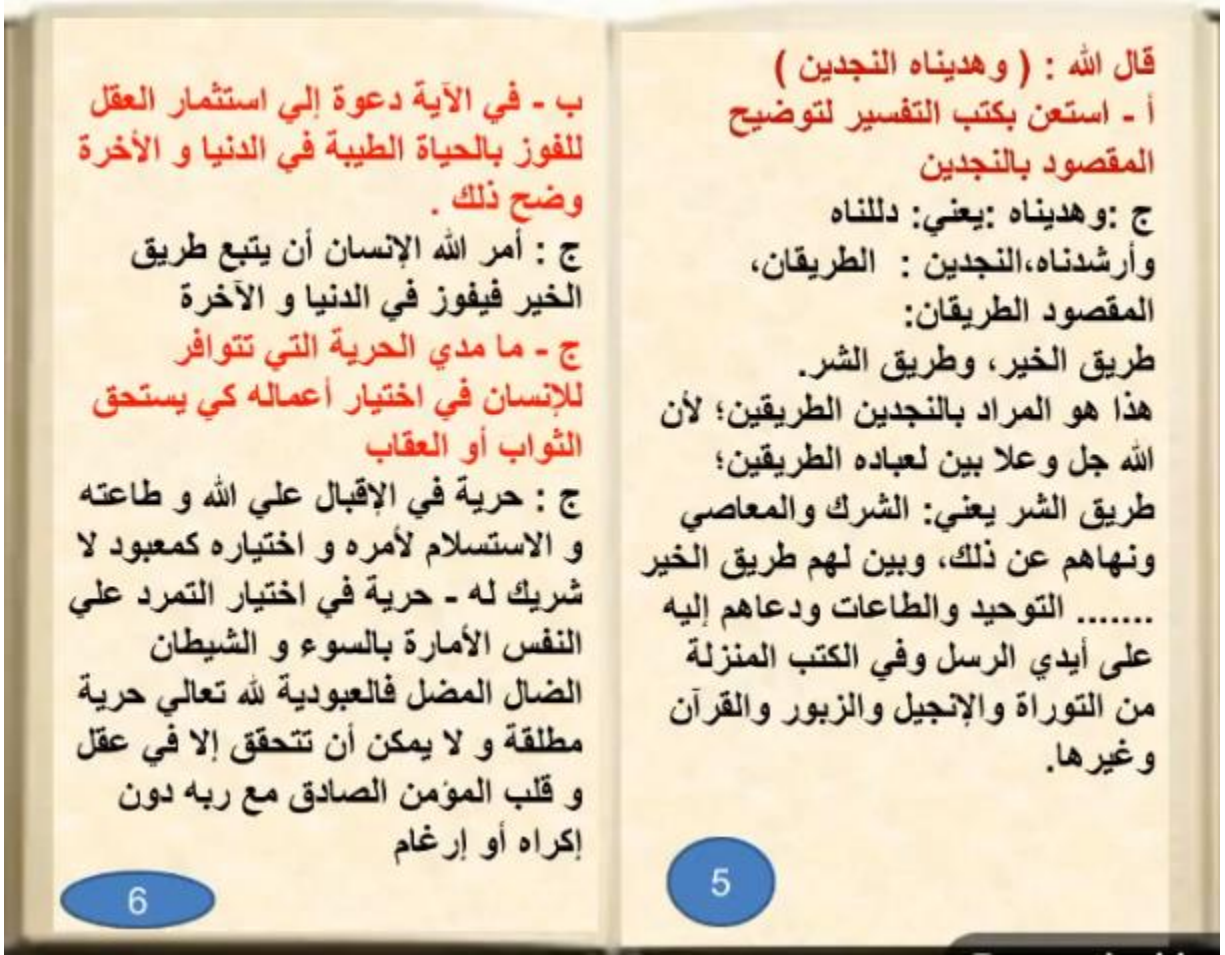 قال الله : ( و هديناه النجدين )
أ - استعن بكتب التفسير لتوضيح
المقصود بالنجدين
ج :وهديناه :يعني: دللناه
وأرشدناه،النجدين : الطريقان،
المقصود الطريقان:
طريق الخير، وطريق الشر.
هذا هو المراد بالنجدين الطريقين؛ لأن
الله جل وعلا بين لعباده الطريقين؛
طريق الشر يعني: الشرك والمعاصي
ونهاهم عن ذلك، وبين لهم طريق الخير
....... التوحيد والطاعات ودعاهم إليه
على أيدي الرسل وفي الكتب المنزلة
من التوراة والإنجيل والزبور والقرآن
وغيرها.
5
ب - في الآية دعوة إلي استثمار العقل
للفوز بالحياة الطيبة في الدنيا و الأخرة
وضح ذلك .
ج : أمر الله الإنسان أن يتبع طريق
الخير فيفوز في الدنيا و الآخرة
ج - ما مدي الحرية التي تتوافر
للإنسان في اختيار أعماله كي يستحق
الثواب أو العقاب
ج : حرية في الإقبال علي الله و طاعته
و الاستسلام لأمره و اختياره كمعبود لا
شريك له - حرية في اختيار التمرد علي
النفس الأمارة بالسوء و الشيطان
الضال المضل فالعبودية لله تعالي حرية
مطلقة و لا يمكن أن تتحقق إلا في عقل
و قلب المؤمن الصادق مع ربه دون
إكراه أو إرغام
6